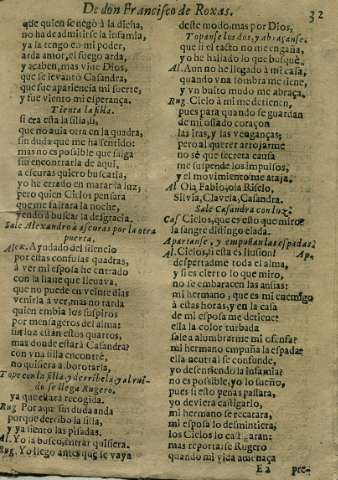 De don Francisco de Roxas. 32
que quien se negò à la dicha,
no ha de admitirse la infamia,
ya la tengo en mi poder,
arda amor, el fuego arda,
y acaben, mas viue Dios,
que se leuantò Casandra,
que fue apariencia mi suerte,
y fue viento mi esperança.
Tienta la silla.
si era esta la silla, si,
que no auia otra en la quadra,
sin duda que me ha sentido:
mas no es possible que salga
sin encontrarla de aqui,
a escuras quiero buscarla,
yo he errado en matar la luz,
pero quien Cielos pensàra
que me faltara la noche,
yendo à buscar la desgracia.
Sale Alexandro a escuras por la otra
puerta.
Alex. Ayudado del silencio
por estas confusas quadras,
à ver mi esposa he entrado
con la llaue que lleuaua,
que no puede en veinte dias
venirla à ver, mas no tarda
quien embia los suspiros
por mensageros del alma:
sin luz estàn estos quartos,
mas donde estarà Casandra?
con vna silla encontrè,
no quisiera alborotarla,
Tope con la silla, y derribela, y al rui-
do se llega Rugero.
ya que estarà recogida.
Rug. Por aqui sin duda anda
porque derribò la silla,
y ya siento las pisadas.
Al. Yo la busco, entrar quisiera.
Rug. Yo llego antes que se vaya
deste modo, mas por Dios,
Topanse los dos, y abraçanse.
que si el tacto no me engaña,
yo he hallado lo que busquè.
Al. Aun no he llegado à mi casa,
quando vna sombra me tiene,
y vn bulto mudo me abraça.
Rug. Cielo à mi me detienen,
pues para quando se guardan
de mi osado coraçon
las iras, y las venganças;
pero al querer arrojarme
no sè que secreta causa
me suspende los impulsos,
y el mouimiento me ataja.
Al. Ola, Fabio, ola Riselo,
Siluia, Clauela, Casandra.
Sale Casandra con luz.
Cas. Cielos, que es esto que miro?
la sangre distingo elada.
Apartanse, y empuñan las espadas.
Al. Cielos, si esta es ilusion? Ap.
despertadme toda el alma,
y si es cierto lo que miro,
no se embaracen las ansias:
mi hermano, que es mi enemigo
à estas horas, y en la casa
de mi esposa me detiene:
ella la color turbada
sale a alumbrarme mi ofensa?
mi hermano empuña la espada?
ella neutral se confunde,
yo defendiendo la infamia?
no es possible, yo lo sueño,
pues si esto penas passara,
yo deuiera castigarlo,
mi hermano se recatara,
mi esposa lo desmintiera,
los Cielos lo castigaran:
mas reportarse Rugero
quando mi vida amenaça
E 2 pre-